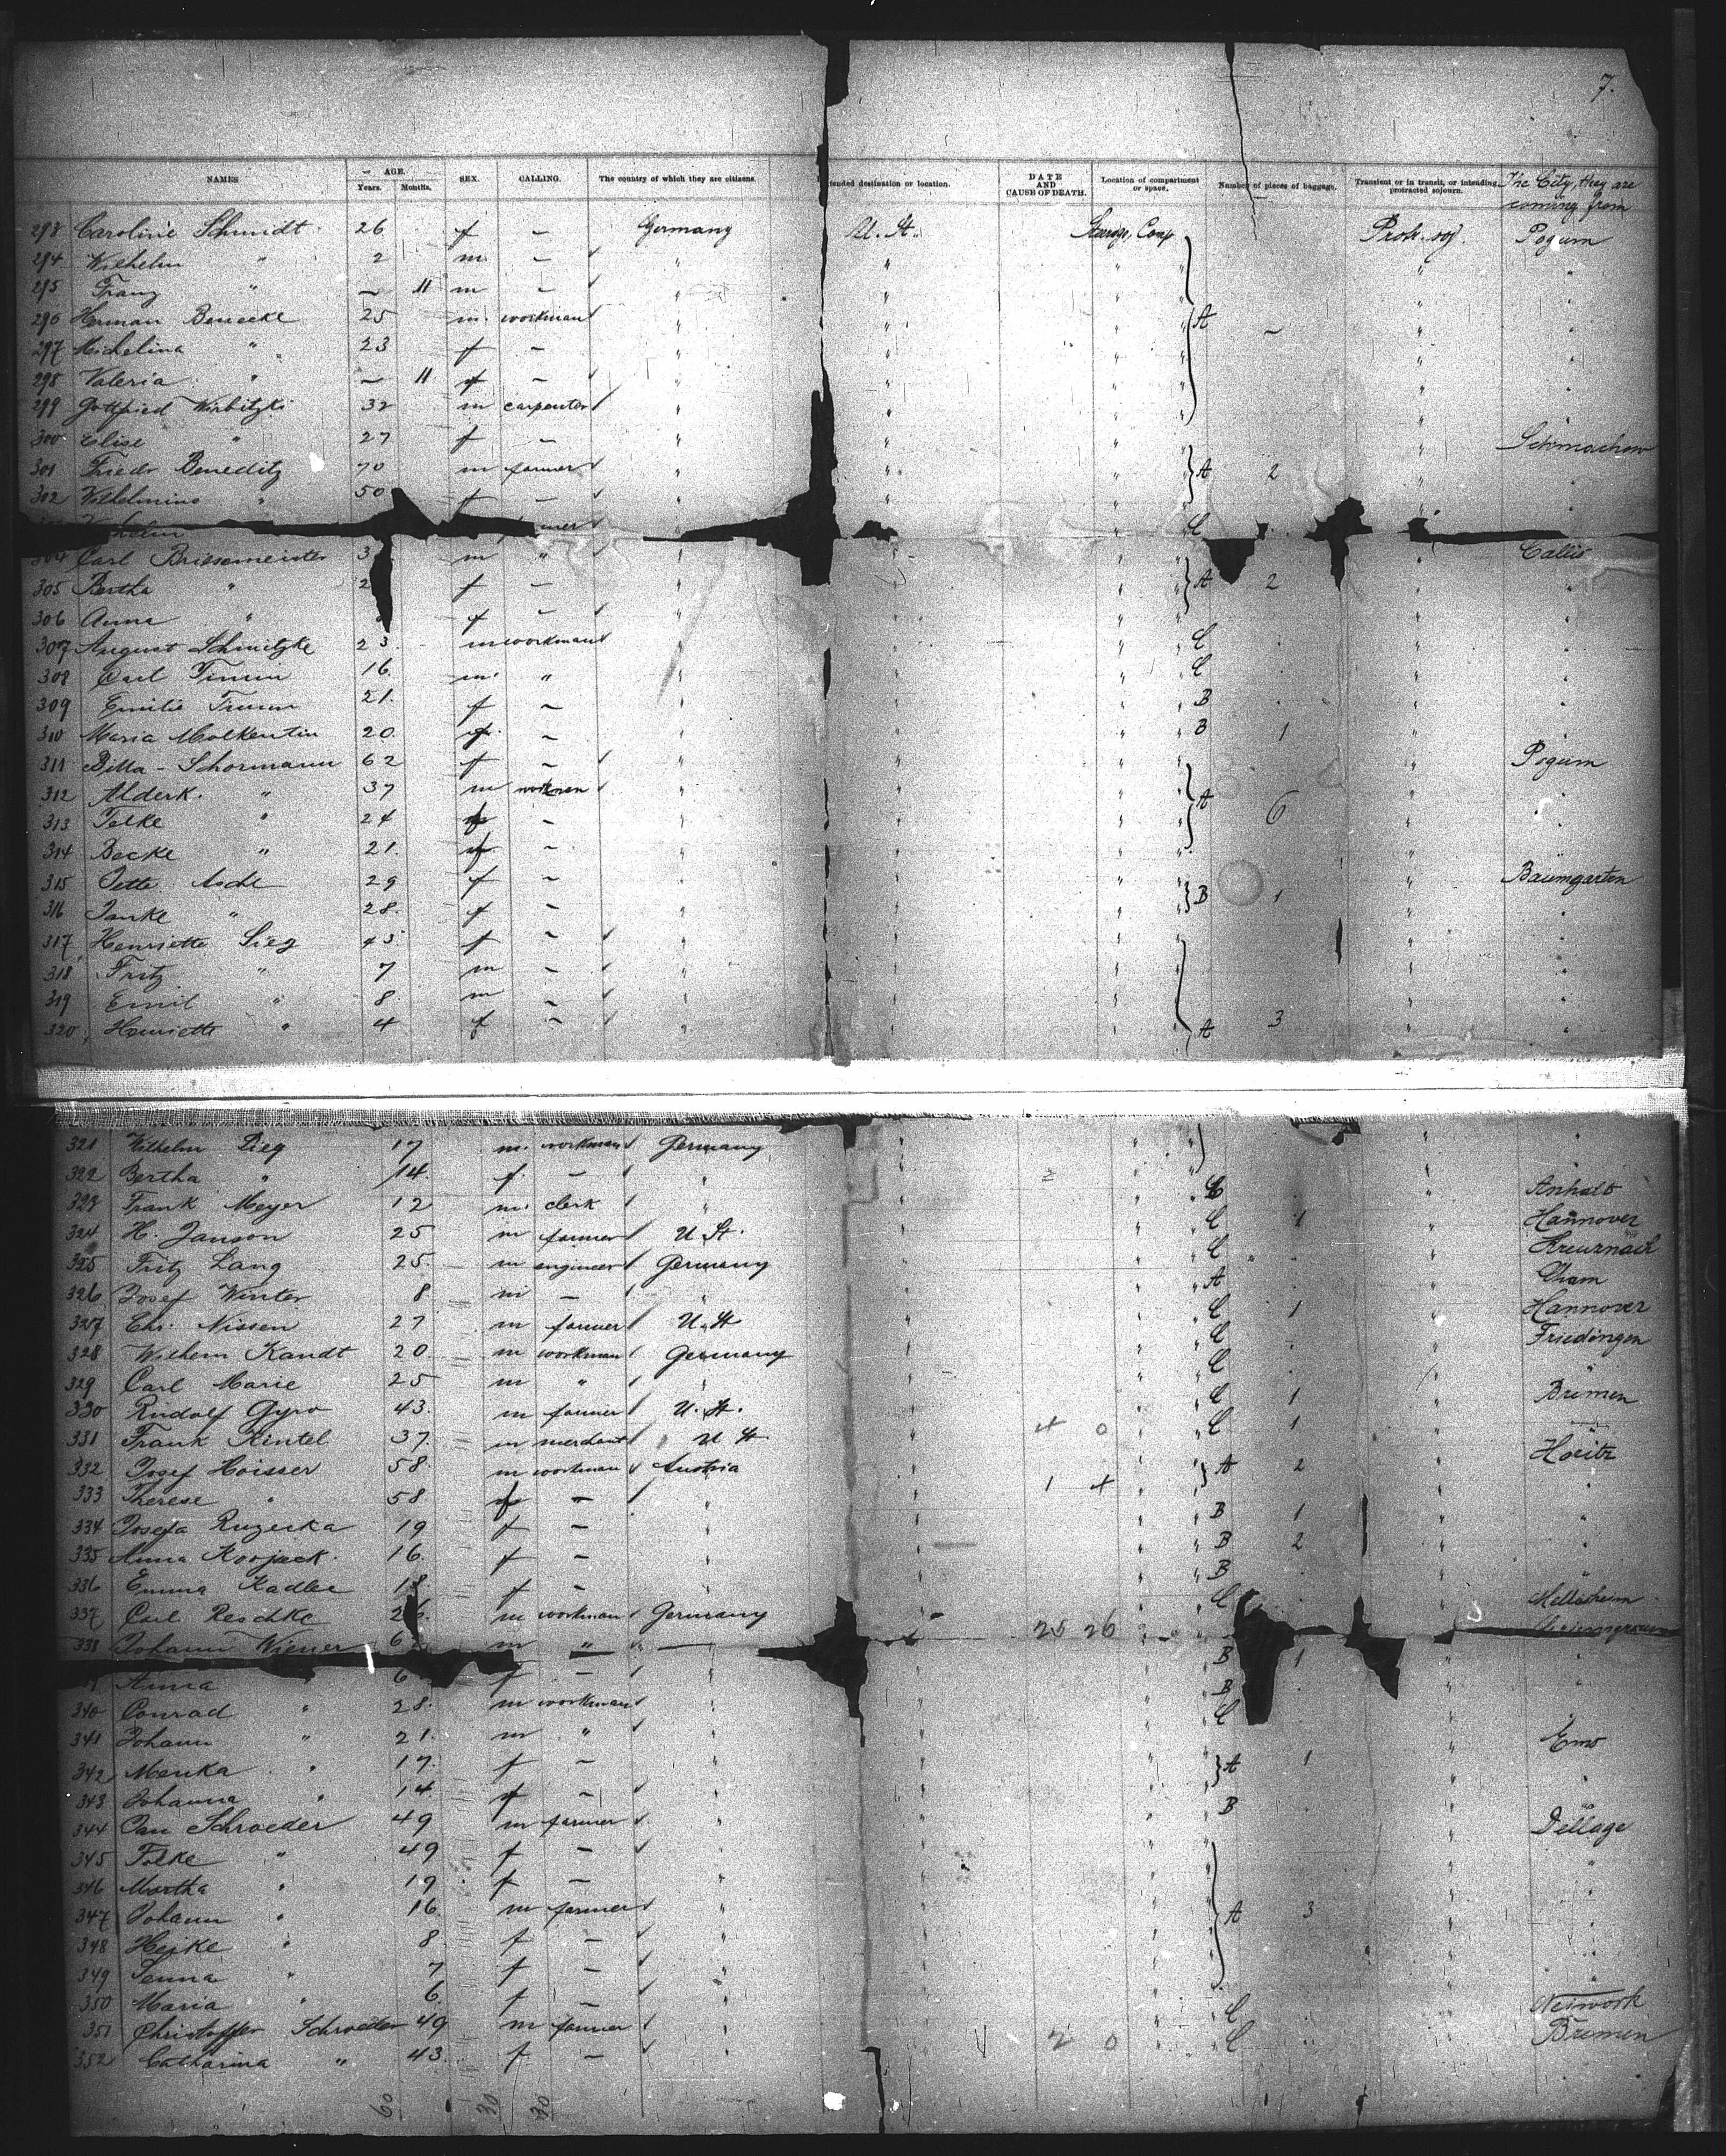 7.
NAMES AGE. Years. Months. SEX. CALLING. The country of which they are citizens. tended destination or location. DATE AND CAUSE OF DEATH. Location of compartment or space. Number of pieces of baggage. Transient or in transit, or intending protracted sojourn. The City, they are coming from
293 Caroline Schmidt 26 f – Germany U. St. Steerage, Comp Protr. soj. Pogum
294 Wilhelm " 2 m – " " " " "
295 Franz " – 11 m – " " " "
296 Herman Benecke 25 m. workman " " " A – " "
297 Michelina " 23 f – " " " " "
298 Valeria " – 11 f – " " " " "
299 Gottfried Wirbitzki 32 m carpenter " " " " "
300 Elise " 27 f – " " " " Schmachow
301 Friedr Beneditz 70 m farmer " " " A 2 " "
302 Wilhelmine " 50 f – " " " " "
helm mer C
304 Carl Briesemeister 3 m " " " " " Callis
305 Bertha " 2 f – " " " A 2 " "
306 Anna " f – " " " " "
307 August Schmitzke 23 m workman " " " C " "
308 Carl Timm 16 m. " " " " C " "
309 Emilie Timm 21. f – " " " B " "
310 Maria Molkentin 20. f. – " " " B 1 " "
311 Billa – Schormann 62 f – " " " " Pogum
312 Alderk. " 37 m workman " " " A 6 " "
313 Telke " 24 f – " " " " "
314 Becke " 21. f – " " " " "
315 Jette Asche 29 f – " " " " Baumgarten
316 Janke " 28. f – " " " B 1 " "
317 Henriette Sieg 43 f – " " " " "
318 Fritz " 7 m – " " " " "
319 Emil " 8. m – " " " " "
320 Henriette " 4 f – " " " A 3 " "
321 Wilhelm Sieg 17 m. workman Germany " " " "
322 Bertha " 14. f. – " " " " "
323 Frank Meyer 12 m. clerk " " " C " Anhalt
324 H. Janson 25 m farmer U St. " " C 1 " Hannover
325 Fritz Lang 25. m engineer Germany " " C " Kreuznach
326 Josef Winter 8 m – " " " A " Cham
327 Chr. Nissen 27 m farmer U. St " " C 1 " Hannover
328 Wilhem Kandt 20 m workman Germany " " C " Friedingen
329 Carl Marie 25 m " " " " C " "
330 Rudolf Gyro 43. m farmer U. St. " " C 1 " Bremen
331 Frank Kintel 37. m merchant U St. " 4 0 " C 1 "
332 Josef Hoisser 58. m workman Austria " " A 2 " Horitz
333 Therese " 58. f – " " 1 4 " " "
334 Josefa Ruzecka 19 f – " " " B 1 " "
335 Anna Korjack. 16. f – " " " B 2 " "
336 Emma Kadlec 18. f – " " " B " "
337 Carl Reschke 26. m workman Germany " " C "
338 Johann Wiener 6 m " " 25 26 "
Anna " 6 f – " " " B 1 " "
340 Conrad " 28. m workman " " " B "
341 Johann " 21. m " " " " C " Ems
342 Menka " 17. f – " " " A 1 " "
343 Johanna " 14 f – " " " "
344 Jan Schroeder 49 m farmer " " " B " Dellage
345 Folke " 49 f – " " " " "
346 Martha " 19 f – " " " " "
347 Johann " 16 m farmer " " " A 3 " "
348 Heike " 8 f – " " " " "
349 Senna " 7 f – " " " " "
350 Maria " 6. f – " " " "
351 Christoffer Schroeder 49 m farmer " " " C "
352 Catharina " 43. f – " " 2 0 " C " Bremen
60 30 30